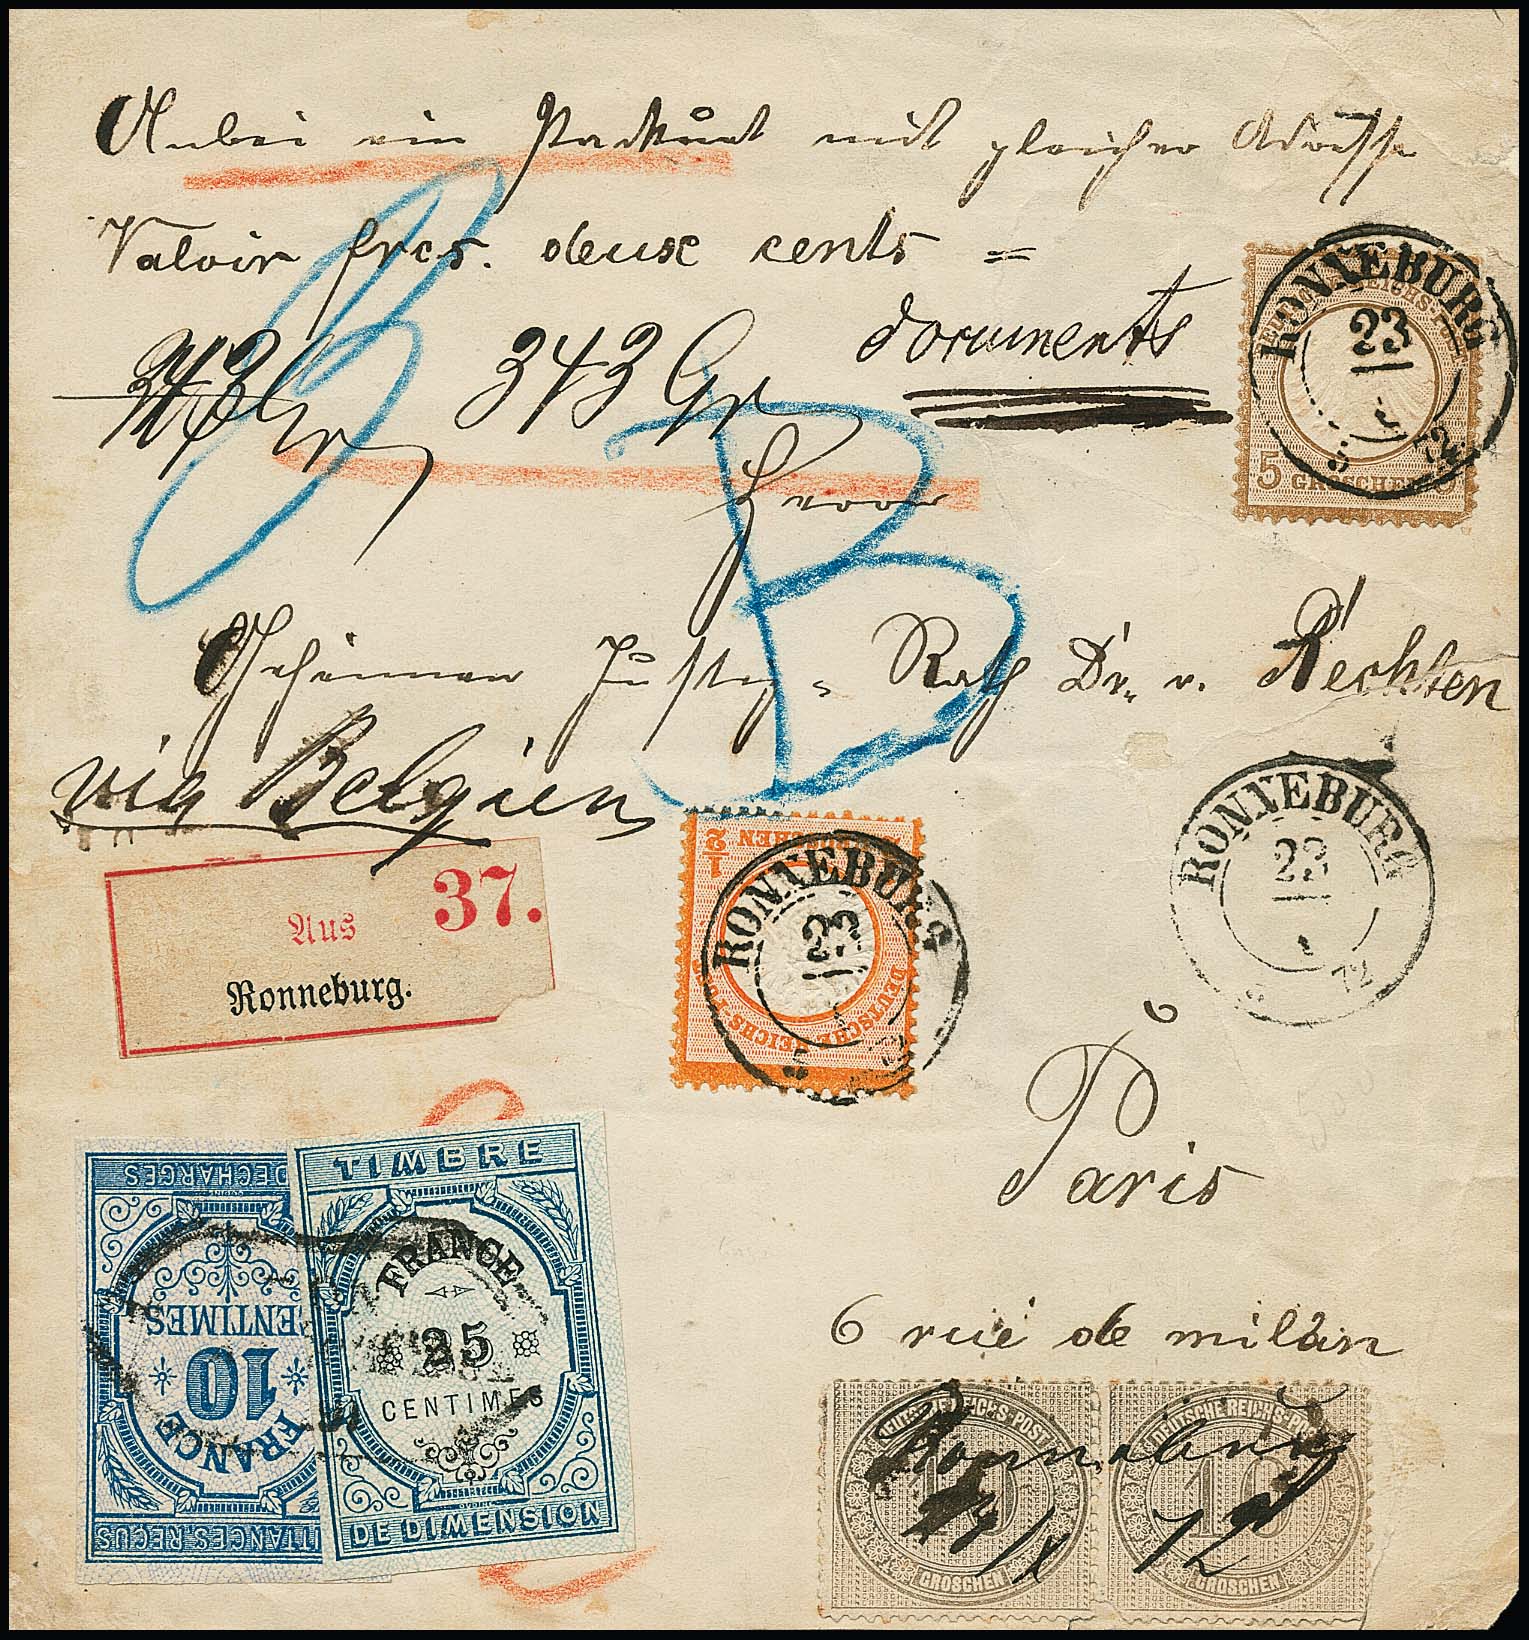 Anbei ein Packet mit gleicher Adresse
Valoir frcs. deux cents =
343 Gr 343 Gr documents
Herrn
Geheimen Justiz-Rath Dr. v. Rechten
via Belgien
Paris
6 rue de milan
RONNEBURG
23
5
GROSCHEN
RONNEBURG
23
DEUTSCHE REICHS-POST
RONNEBURG
23
72
Aus 37.
Ronneburg.
DECHARGES
10
CENTIMES
FRANCE
QUITTANCES.REÇUS
TIMBRE
FRANCE
25
CENTIMES
DE DIMENSION
DEUTSCHE REICHS-POST
10
GROSCHEN
DEUTSCHE REICHS-POST
10
GROSCHEN
Ronneburg
72